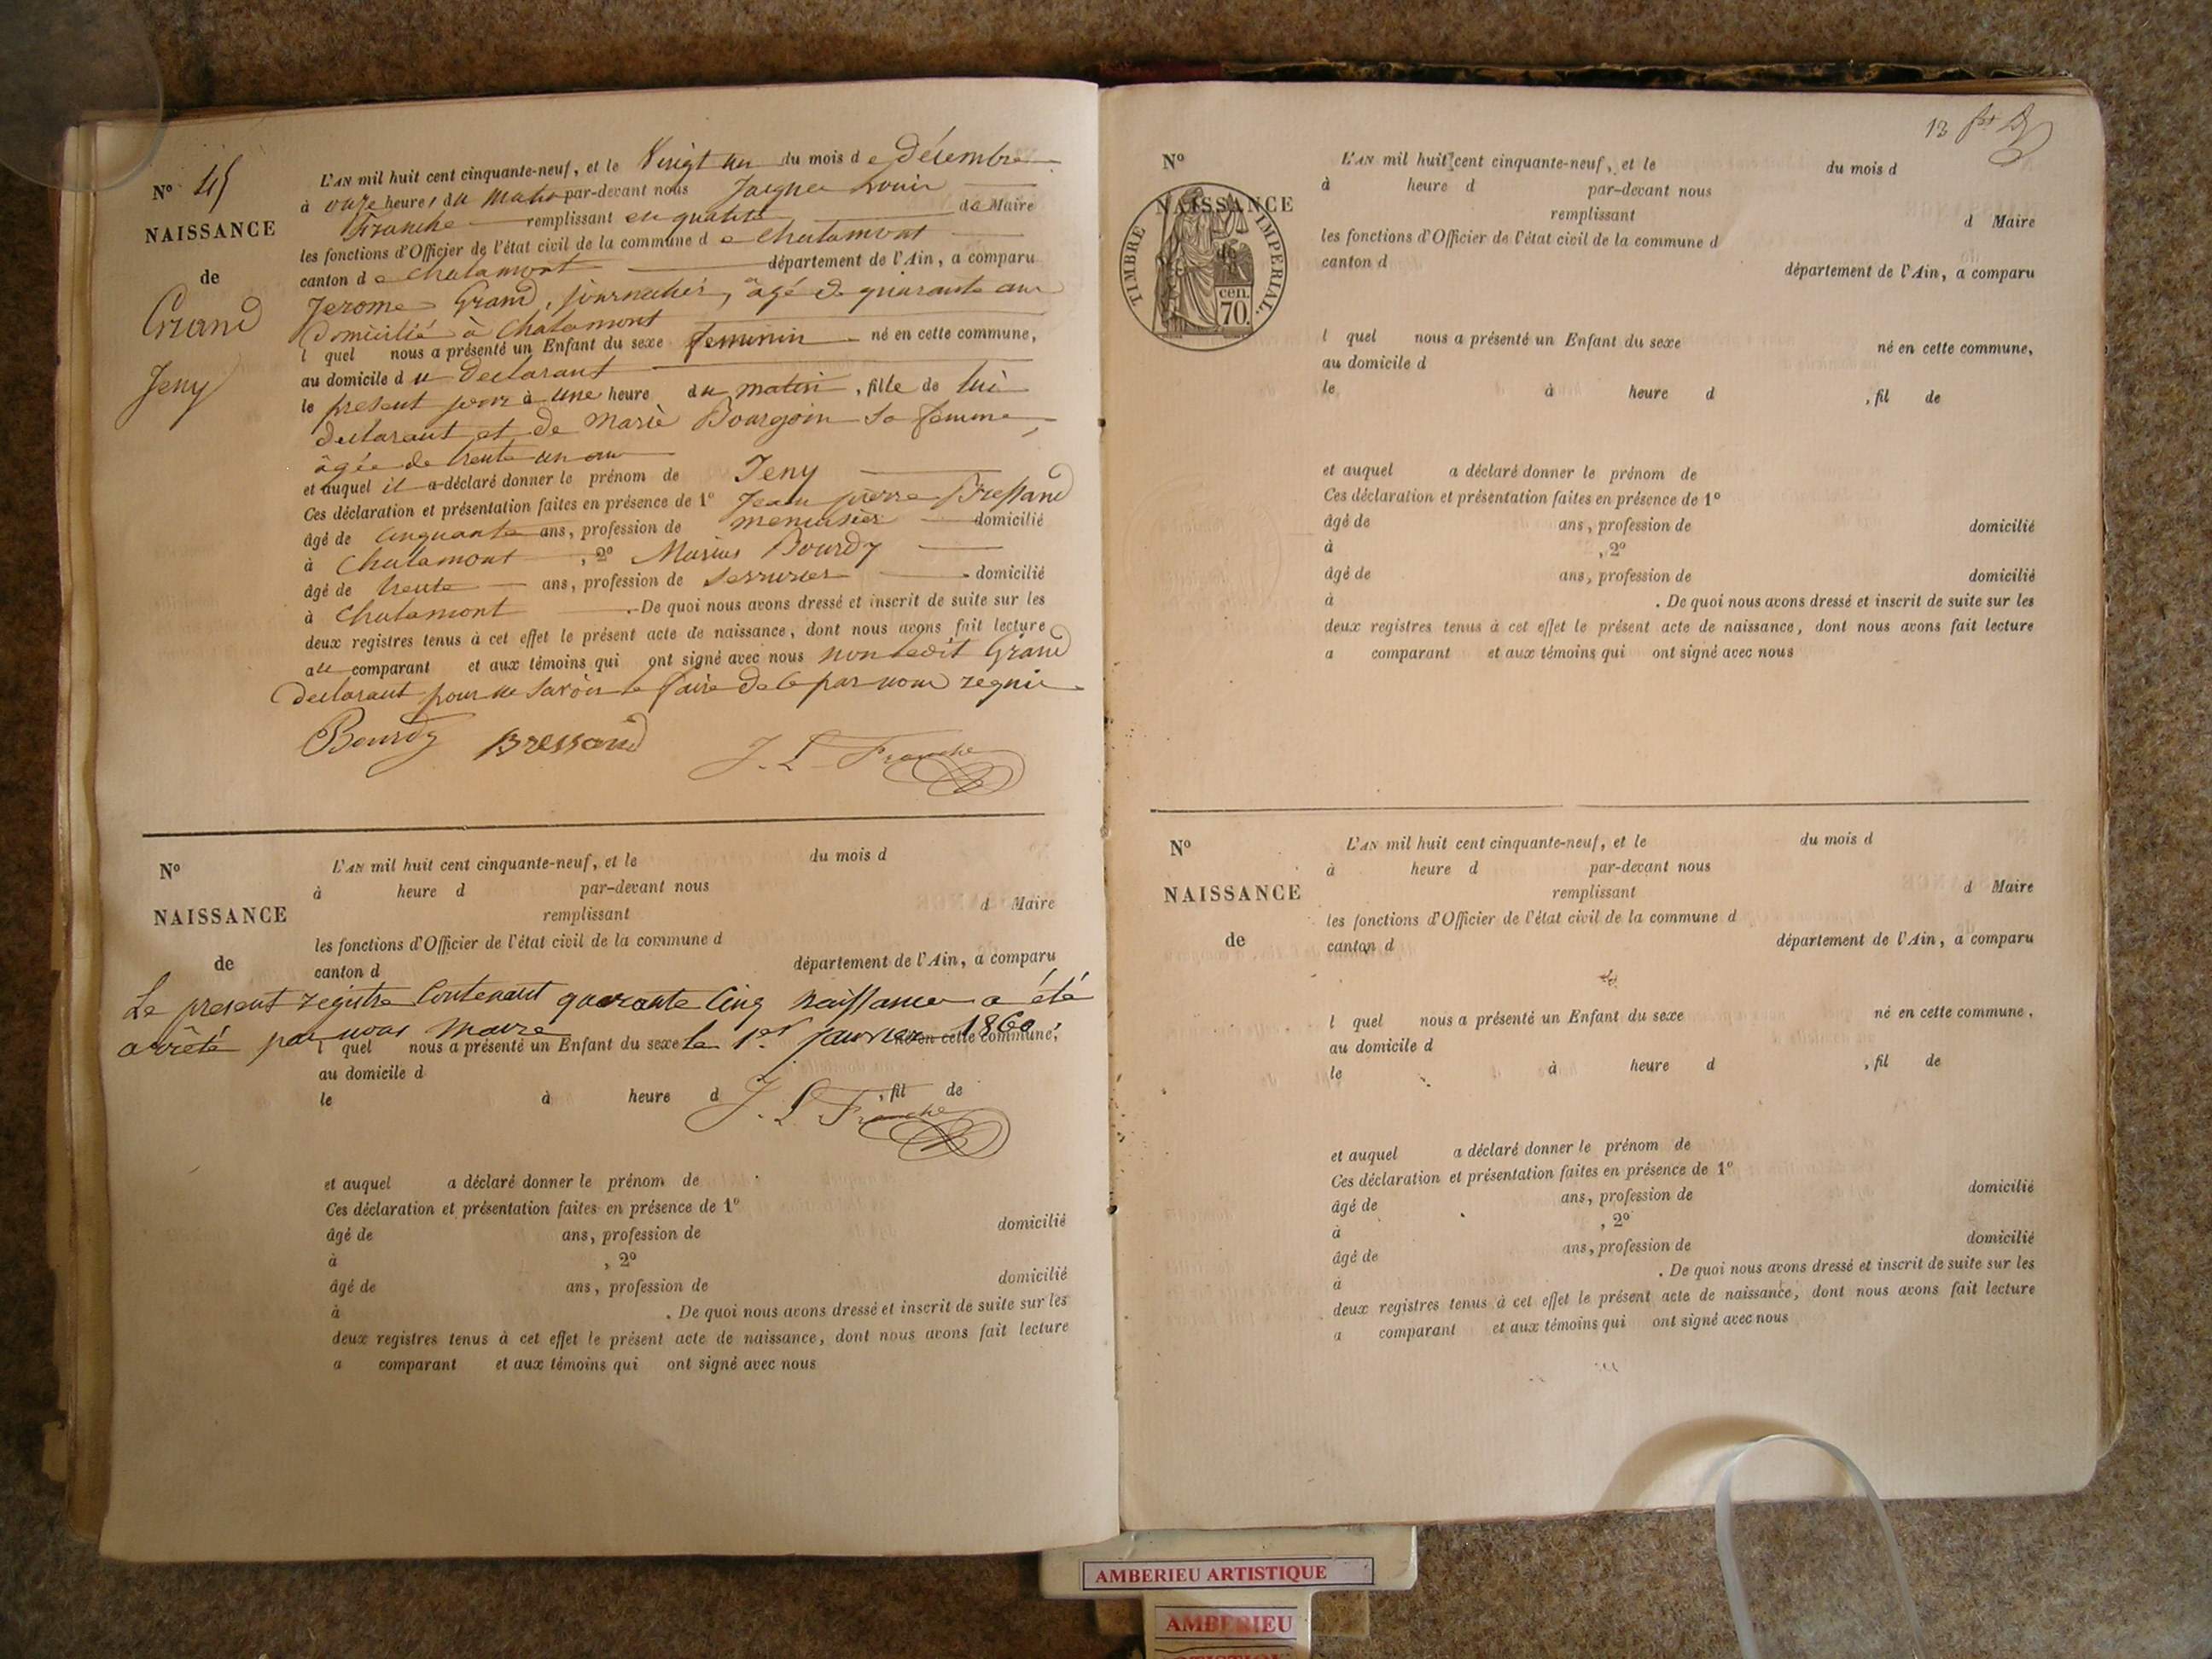 N° 45
NAISSANCE
de
Grand
Jeny
L'AN mil huit cent cinquante-neuf, et le Vingt un du mois de décembre
à onze heures du matin par-devant nous Jacques Louis
Franche remplissant en qualité de Maire
les fonctions d'Officier de l'état civil de la commune de Chalamont
canton de Chalamont département de l'Ain, a comparu
Jerome Grand, journalier, âgé de quarante ans
Domicilié à Chalamont
l quel nous a présenté un Enfant du sexe feminin né en cette commune,
au domicile du declarant
le présent jour à une heure du matin, fille de lui
declarant et de Marie Bourgoin sa femme,
âgée de trente un ans
et auquel il a déclaré donner le prénom de Jeny
Ces déclaration et présentation faites en présence de 1° Jean pierre Bressand
âgé de cinquante ans, profession de menuisier domicilié
à Chalamont, 2° Marius Bourdy
âgé de trente ans, profession de serrurier domicilié
à Chalamont. De quoi nous avons dressé et inscrit de suite sur les
deux registres tenus à cet effet le présent acte de naissance, dont nous avons fait lecture
au comparant et aux témoins qui ont signé avec nous non ledit Grand
declarant pour ne savoir le faire de ce par nous requis
Bourdy Bressand J. L. Franche
N°
NAISSANCE
de
L'AN mil huit cent cinquante-neuf, et le du mois d
à heure d par-devant nous
remplissant d Maire
les fonctions d'Officier de l'état civil de la commune d
canton d département de l'Ain, a comparu
Le present registre contenant quarante cinq naissances a été
arrêté par nous Maire le 1er janvier 1860
l quel nous a présenté un Enfant du sexe né en cette commune,
au domicile d
le à heure d , fil de
J. L. Franche
et auquel a déclaré donner le prénom de
Ces déclaration et présentation faites en présence de 1°
âgé de ans, profession de domicilié
à , 2°
âgé de ans, profession de domicilié
à . De quoi nous avons dressé et inscrit de suite sur les
deux registres tenus à cet effet le présent acte de naissance, dont nous avons fait lecture
a comparant et aux témoins qui ont signé avec nous
13
N°
NAISSANCE
TIMBRE IMPERIAL.
cen.
70.
L'AN mil huit cent cinquante-neuf, et le du mois d
à heure d par-devant nous
remplissant d Maire
les fonctions d'Officier de l'état civil de la commune d
canton d département de l'Ain, a comparu
l quel nous a présenté un Enfant du sexe né en cette commune,
au domicile d
le à heure d , fil de
et auquel a déclaré donner le prénom de
Ces déclaration et présentation faites en présence de 1°
âgé de ans, profession de domicilié
à , 2°
âgé de ans, profession de domicilié
à . De quoi nous avons dressé et inscrit de suite sur les
deux registres tenus à cet effet le présent acte de naissance, dont nous avons fait lecture
a comparant et aux témoins qui ont signé avec nous
N°
NAISSANCE
de
L'AN mil huit cent cinquante-neuf, et le du mois d
à heure d par-devant nous
remplissant d Maire
les fonctions d'Officier de l'état civil de la commune d
canton d département de l'Ain, a comparu
l quel nous a présenté un Enfant du sexe né en cette commune,
au domicile d
le à heure d , fil de
et auquel a déclaré donner le prénom de
Ces déclaration et présentation faites en présence de 1°
âgé de ans, profession de domicilié
à , 2°
âgé de ans, profession de domicilié
à . De quoi nous avons dressé et inscrit de suite sur les
deux registres tenus à cet effet le présent acte de naissance, dont nous avons fait lecture
a comparant et aux témoins qui ont signé avec nous
AMBERIEU ARTISTIQUE
AMBERIEU